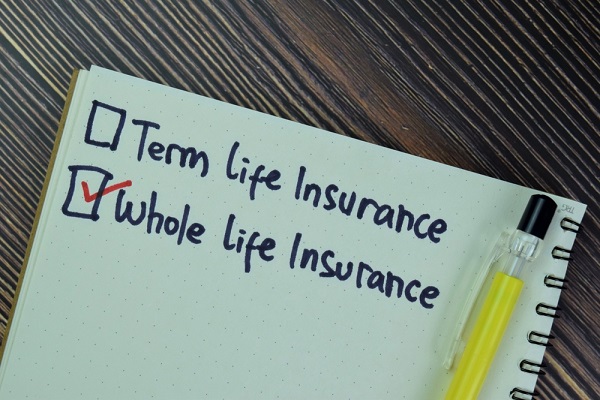 Term life Insurance
Whole life Insurance